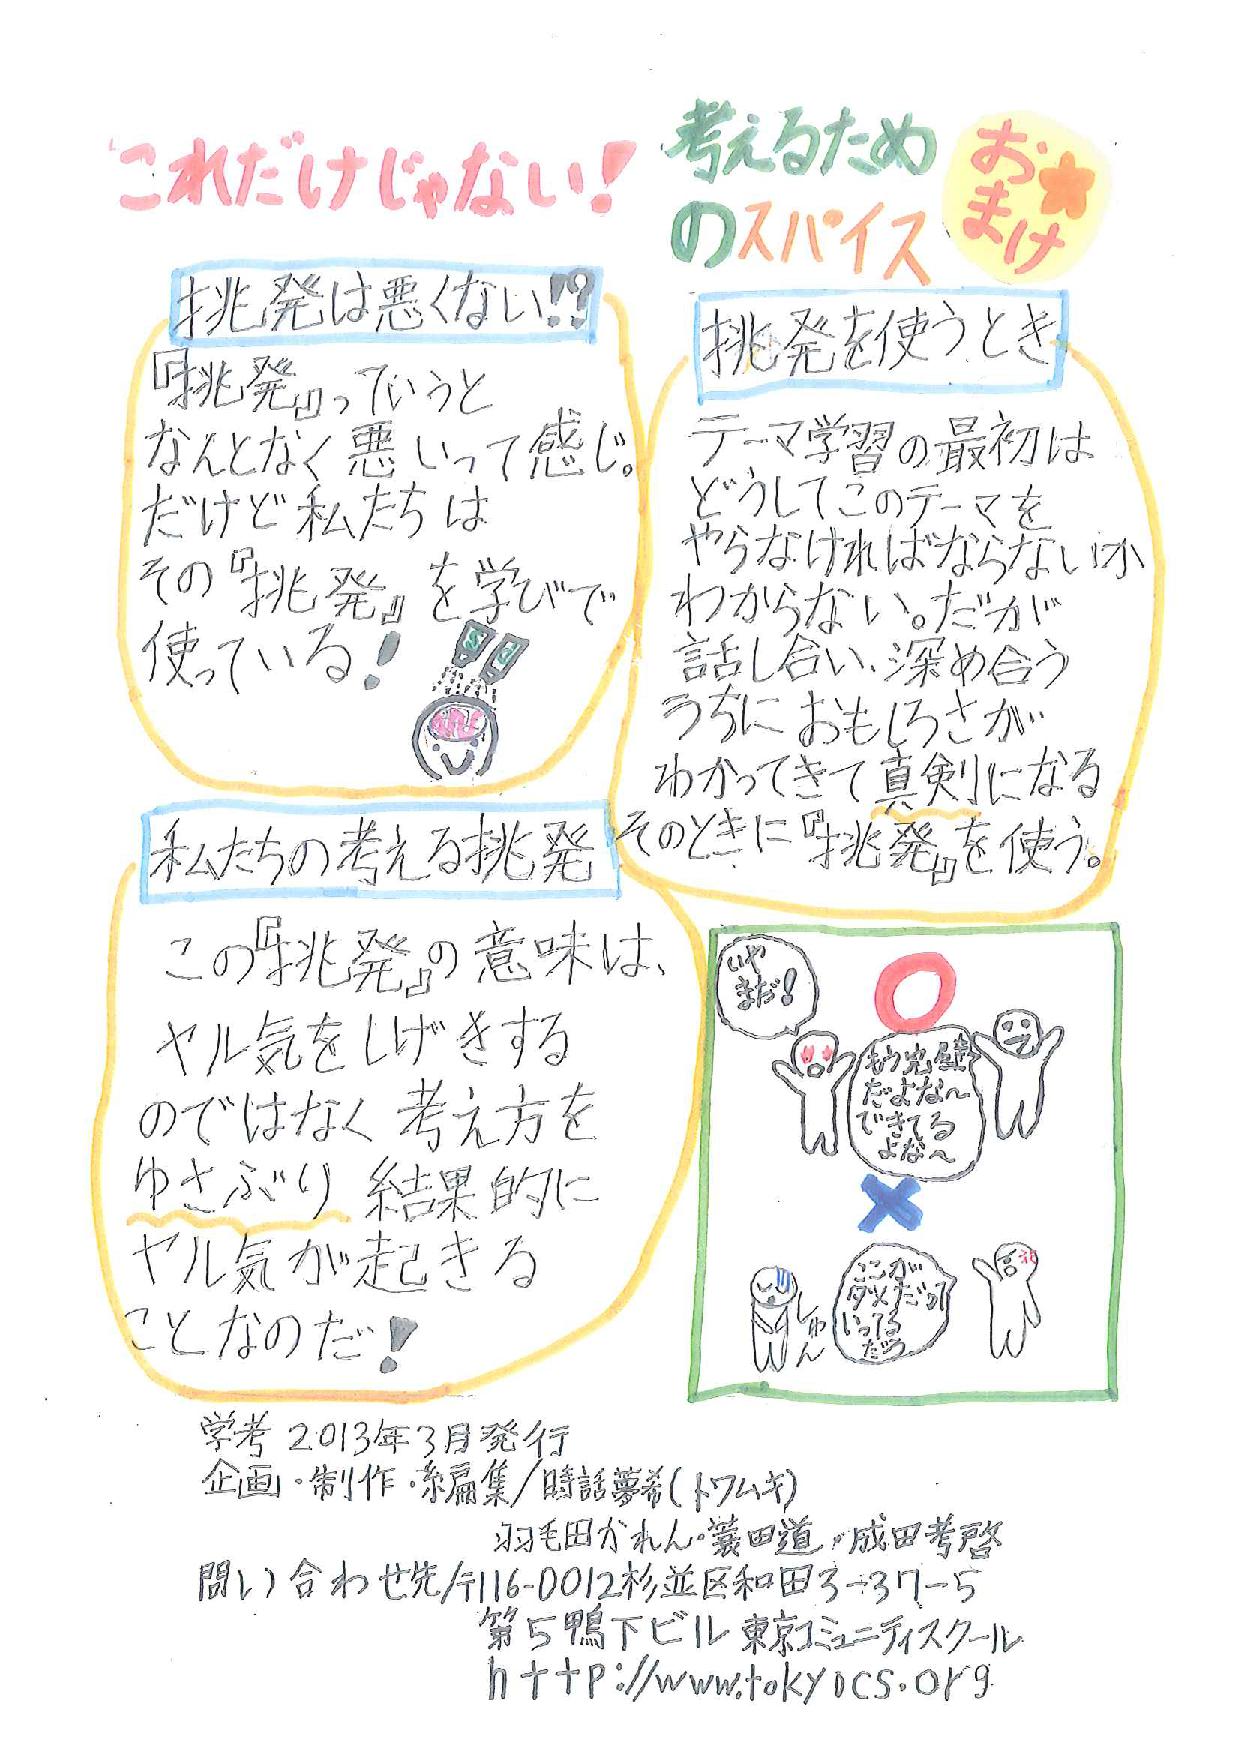 これだけじゃない!
考えるため
のスパイス
お
まけ
挑発は悪くない!?
『挑発』っていうと
なんとなく悪いって感じ。
だけど私たちは
その『挑発』を学びで
使っている!
挑発を使うとき
テーマ学習の最初は
どうしてこのテーマを
やらなければならないか
わからない。だが
話し合い、深め合う
うちにおもしろさが
わかってきて真剣になる
そのときに『挑発』を使う。
私たちの考える挑発
この『挑発』の意味は、
ヤル気をしげきする
のではなく考え方を
ゆさぶり結果的に
ヤル気が起きる
ことなのだ!
いや
まだ!
もう完璧
だよな〜
できてる
よな〜
ここが
ダメだって
いってる
だろ
しゅん
学考 2013年3月発行
企画・制作・編集/時話夢希(トワムキ)
羽毛田かれん・蓑田道・成田考啓
問い合わせ先/〒116-0012杉並区和田3-37-5
第5鴨下ビル 東京コミュニティスクール
http://www.tokyocs.org